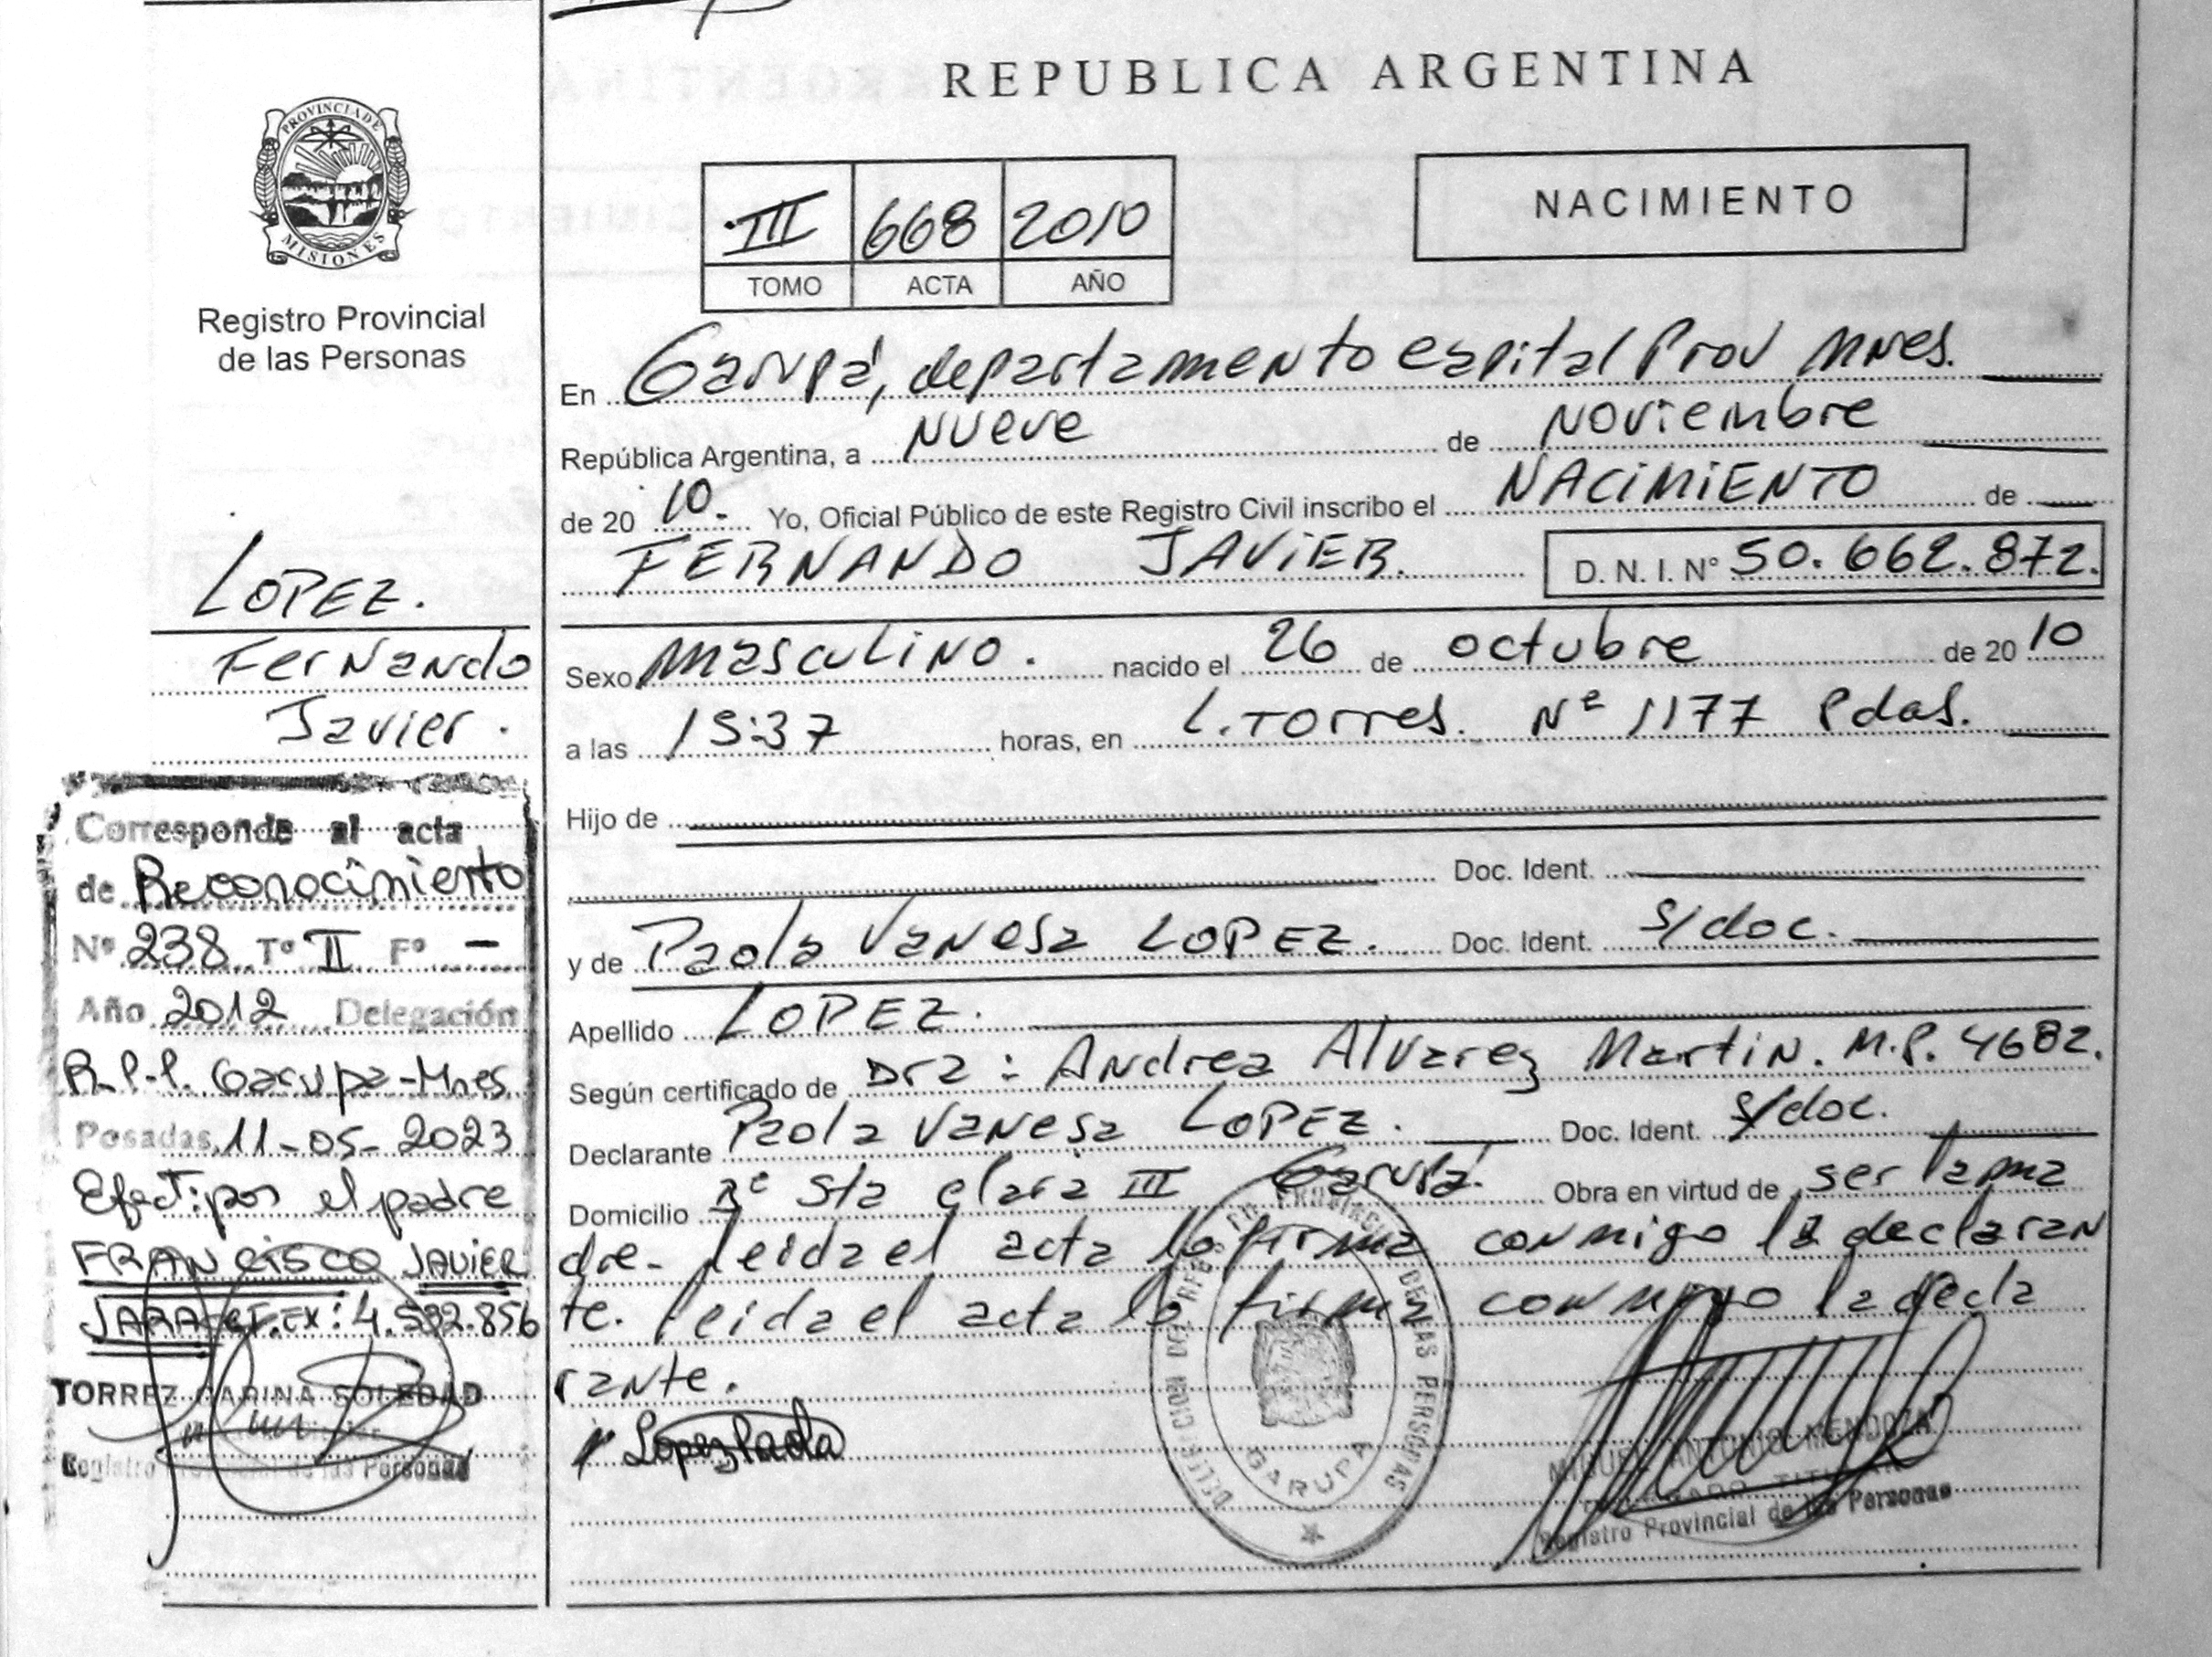 PROVINCIA DE
MISIONES
Registro Provincial
de las Personas
LOPEZ.
Fernando
Javier.
Corresponde al acta
de Reconocimiento
Nº 238 Tº II Fº -
Año 2012 Delegación
R.P.P. Garupa-Mnes
Posadas 11-05-2023
Efect: por el padre
FRANCISCO JAVIER
JARA 4.592.856
TORREZ CARINA SOLEDAD
Registro Provincial de las Personas
REPUBLICA ARGENTINA
III 668 2010
TOMO ACTA AÑO
NACIMIENTO
En Garupá, departamento capital Prov Mnes.
República Argentina, a nueve de noviembre
de 20 10. Yo, Oficial Público de este Registro Civil inscribo el NACIMIENTO de
FERNANDO JAVIER. D. N. I. Nº 50.662.872.
Sexo masculino. nacido el 26 de octubre de 20 10
a las 15:37 horas, en L. Torres. Nº 1177 Pdas.
Hijo de
Doc. Ident.
y de Paola Vanesa LOPEZ. Doc. Ident. s/doc.
Apellido LOPEZ.
Según certificado de Dra: Andrea Alvarez Martin. M.P. 4682.
Declarante Paola Vanesa LOPEZ. Doc. Ident. s/doc.
Domicilio Bº Sta clara III Garupá. Obra en virtud de ser la ma
dre- leida el acta lo firma conmigo la declaran
te. leida el acta lo firma conmigo la decla
rante.
Lopez Paola
DE LAS PERSONAS
GARUPA
MIGUEL ANTONIO MENDOZA
Registro Provincial de las Personas